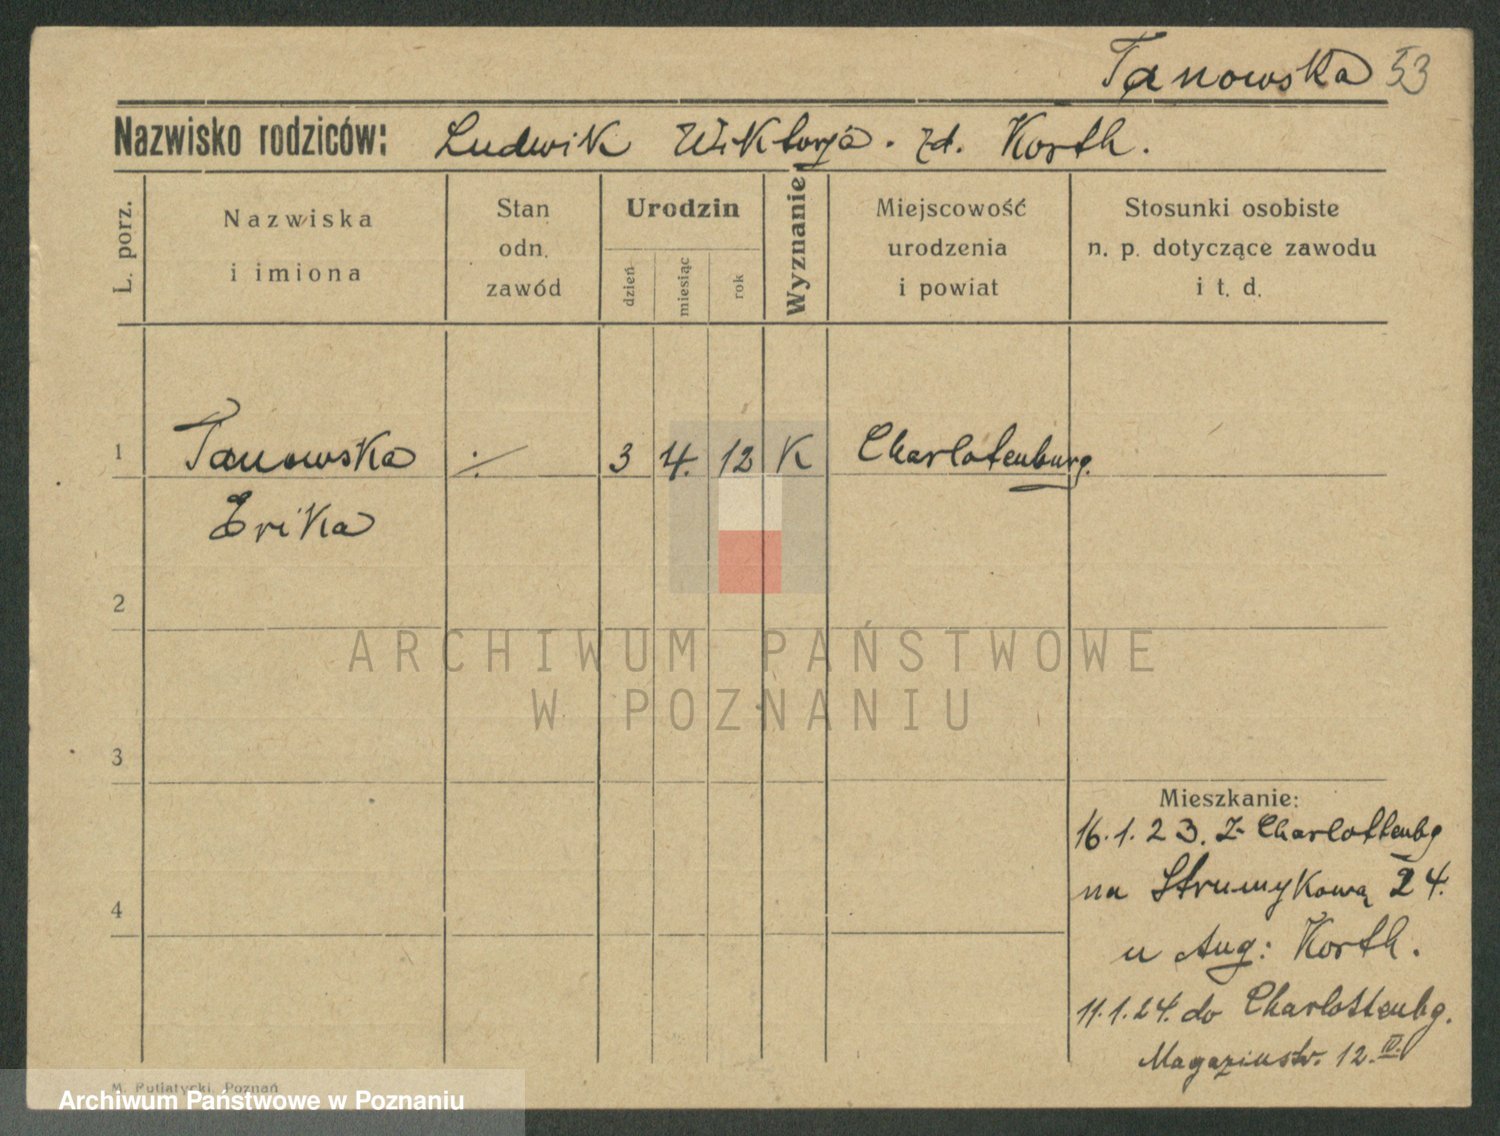 Tanowska 53
Nazwisko rodziców: Ludwik Wiktorja. zd. Korth.
L. porz.
Nazwiska
i imiona
Stan
odn.
zawód
Urodzin
dzień
miesiąc
rok
Wyznanie
Miejscowość
urodzenia
i powiat
Stosunki osobiste
n. p. dotyczące zawodu
i t. d.
1 Tanowska ./. 3 4. 12 K Charlotenburg.
Erika
2
ARCHIWUM PAŃSTWOWE
W POZNANIU
3
Mieszkanie:
16.1.23. z Charlottenbg
na Strumykową 24.
4
u Aug: Korth.
11.1.24. do Charlottenbg.
Magazinstr. 12. IV.
M. Putiatycki, Poznań
Archiwum Państwowe w Poznaniu